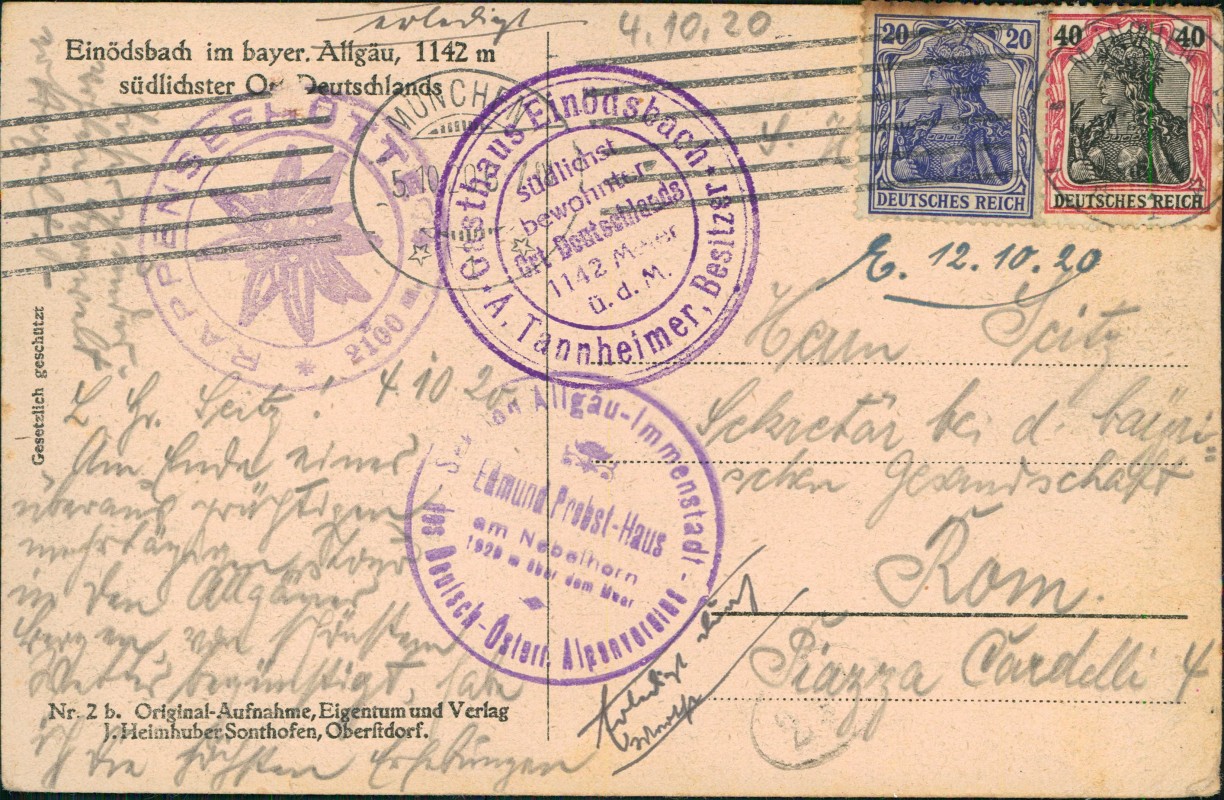 erledigt
4.10.20
Einödsbach im bayer. Allgäu, 1142 m
südlichster Ort Deutschlands
20 20
DEUTSCHES REICH
40 40
DEUTSCHES REICH
MÜNCHEN
5.10.
RAPPENSEEHÜTTE
* 2100 m
Gasthaus Einödsbach
südlichst
bewohnter
Ort Deutschlands
1142 Meter
ü. d. M.
A. Tannheimer, Besitzer
E. 12.10.20
Gesetzlich geschützt
L. Hr. Seitz! 4.10.20
Am Ende eines
überaus prächtigen
mehrtägigen
in den Allgäuer
Bergen, von schönstem
Wetter begünstigt, habe
ich die höchsten Erhebungen
Herrn Seitz
Sekretär bei d. bayri-
schen Gesandschaft
Rom.
Piazza Cardelli 4
Section Allgäu-Immenstadt
Edmund Probst-Haus
am Nebelhorn
1929 m über dem Meer
des Deutsch-Österr. Alpenvereins
Nr. 2 b. Original-Aufnahme, Eigentum und Verlag
J. Heimhuber Sonthofen, Oberstdorf.